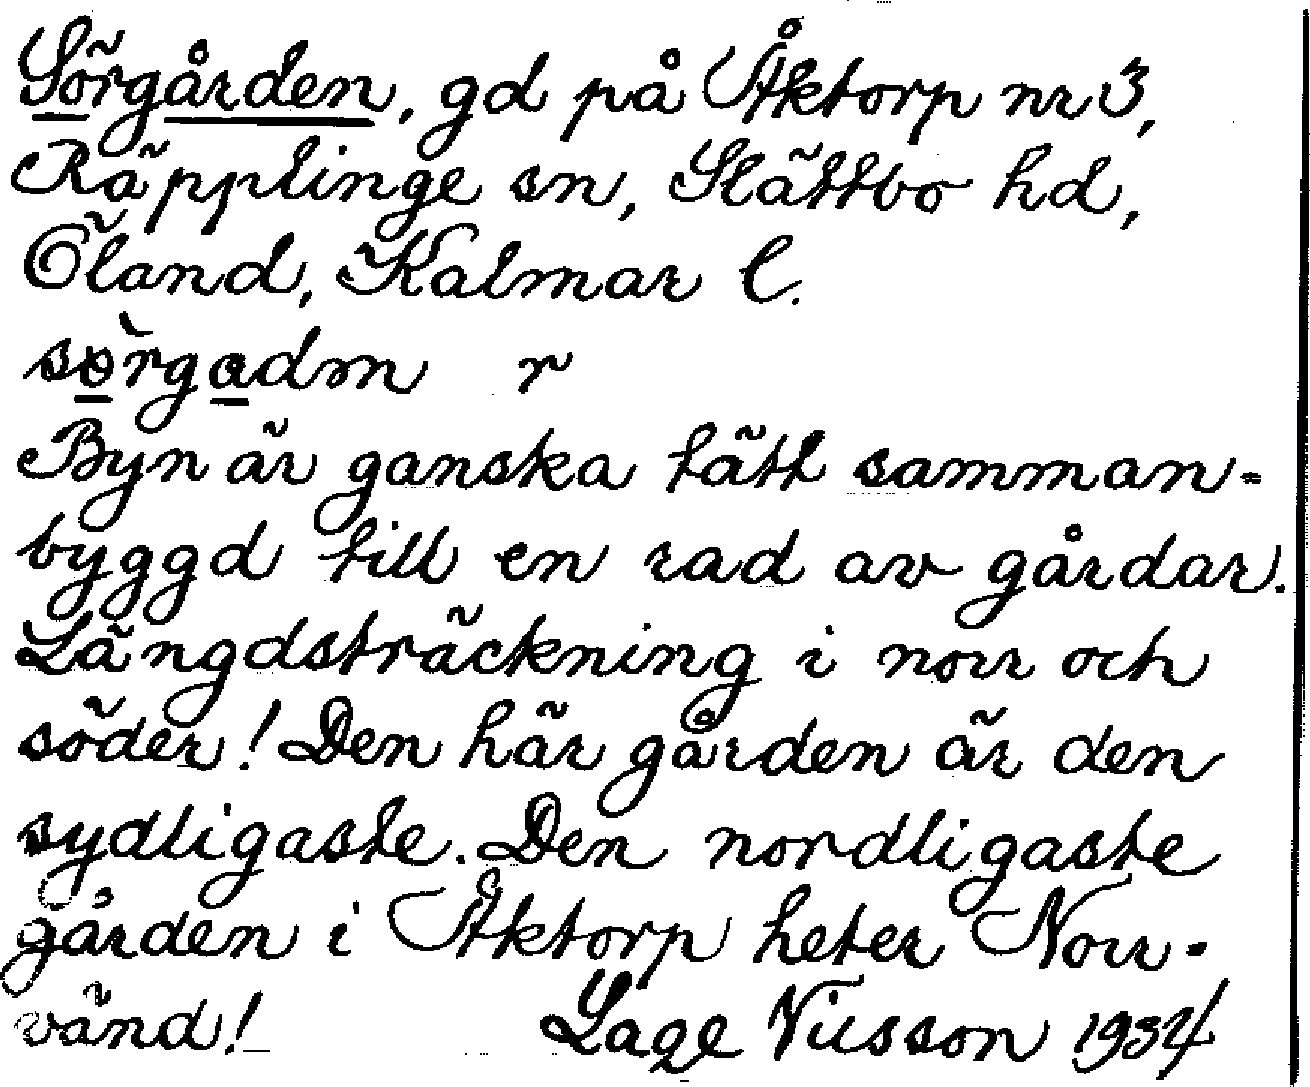 Sörgården, gd på Åktorp nr 3,
Räpplinge sn, Slättbo hd,
Öland, Kalmar l.
sörgadm r
Byn är ganska tätt samman-
byggd till en rad av gårdar.
Längdsträckning i norr och
söder! Den här gården är den
sydligaste. Den nordligaste
gården i Åktorp heter Norr-
vänd!
Lage Nilsson 1934